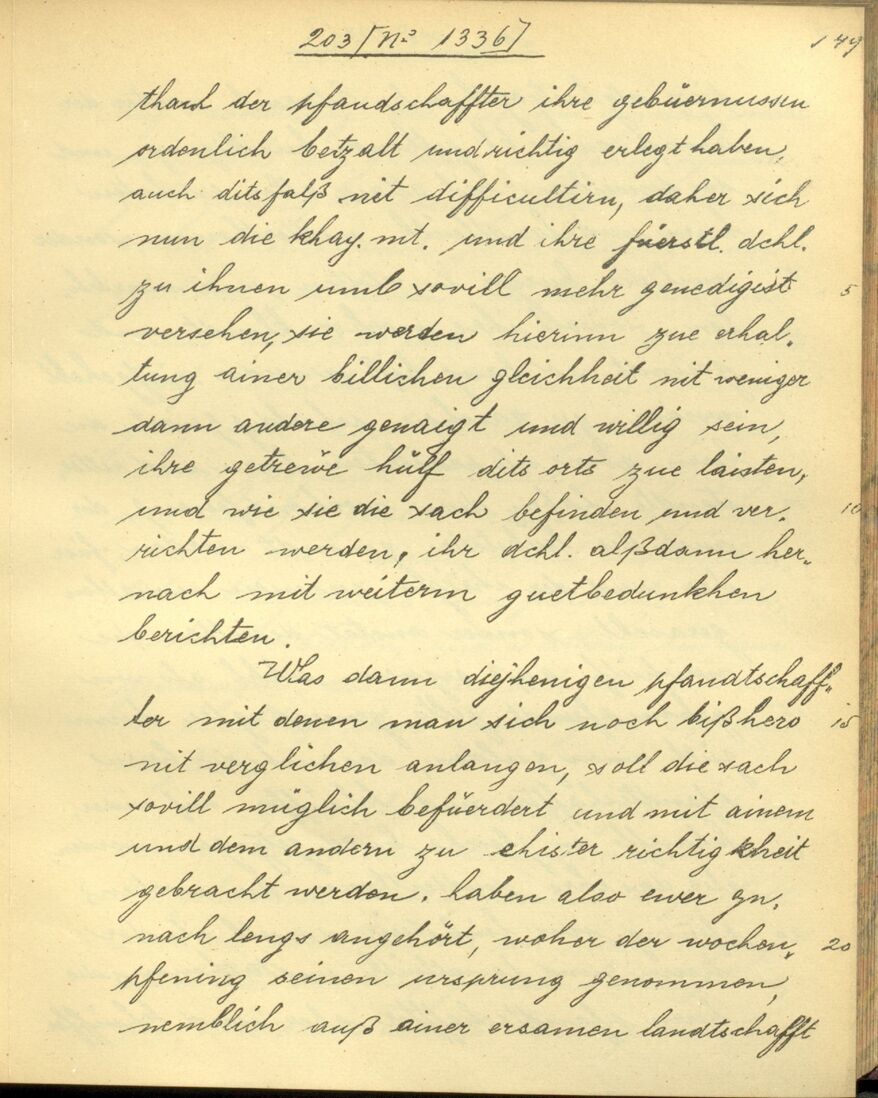 203 [No 1336]
149
thail der pfandschaffter ihre gebüernussen
ordenlich betzalt und richtig erlegt haben,
auch ditsfalß nit difficultirn, daher sich
nun die khay. mt. und ihre fürstl. dchl.
zu ihnen umb sovill mehr genedigist 5
versehen, sie werden hierinn zue erhal-
tung ainer billichen gleichheit nit weniger
dann andere genaigt und willig sein,
ihre getrewe hülf dits orts zue laisten,
und wie sie die sach befinden und ver- 10
richten werden, ihr dchl. alßdann her-
nach mit weiterm guetbedunkhen
berichten.
Was dann diejhenigen pfandtschaff-
ter mit denen man sich noch bißhero 15
nit verglichen anlangen, soll die sach
sovill müglich befüerdert und mit ainem
und dem andern zu ehister richtigkheit
gebracht werden. haben also ewer gn.
nach lengs angehört, woher der wochen- 20
pfening seinen ursprung genommen,
nemblich auß ainer ersamen landtschafft